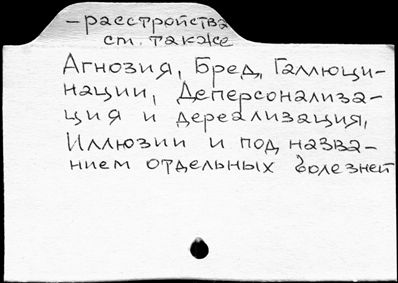 -расстройства
см. также
Агнозия, Бред, Галлюци-
нации, Деперсонализа-
ция и дереализация,
Иллюзии и под назва-
нием отдельных болезней